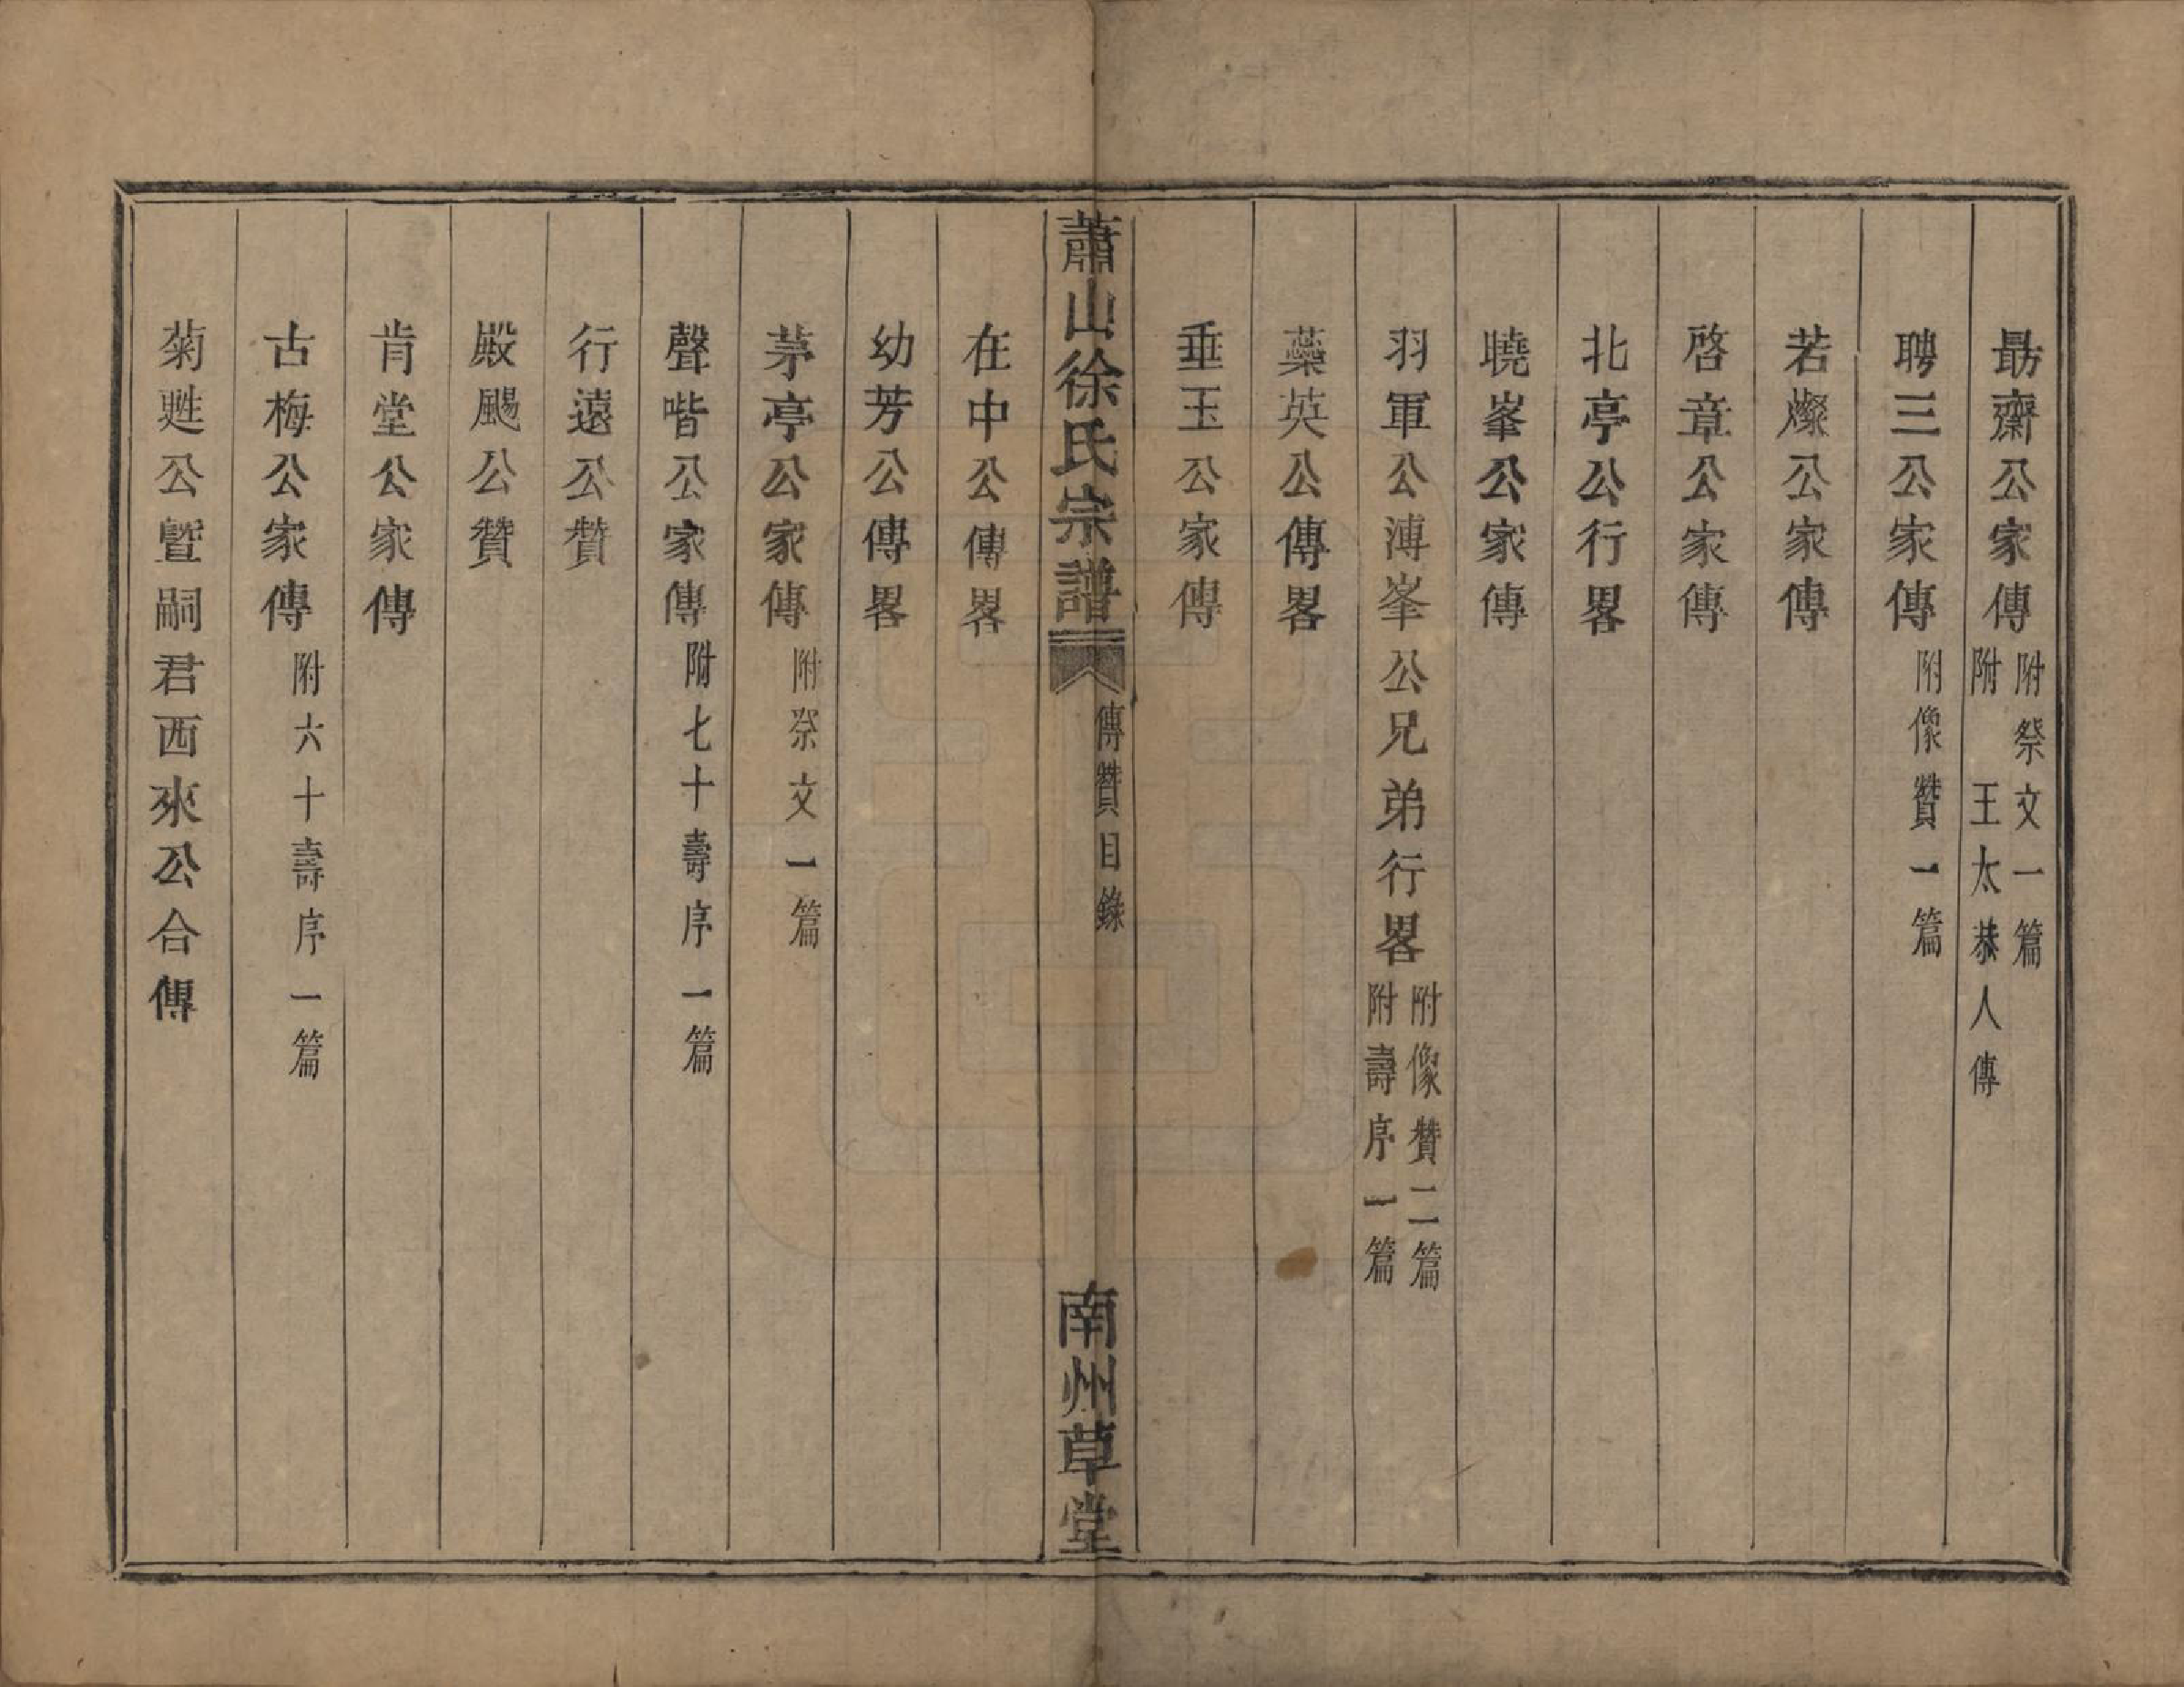 勗齋公家傳 附祭文一篇 附 王太恭人傳
聘三公家傳 附像贊一篇
若燦公家傳
啓章公家傳
北亭公行畧
曉峯公家傳
羽軍公溥峯公兄弟行畧 附像贊二篇 附壽序一篇
藻英公傳畧
垂玉公家傳
蕭山徐氏宗譜 傳贊目錄 南州草堂
在中公傳畧
幼芳公傳畧
茅亭公家傳 附祭文一篇
聲喈公家傳 附七十壽序一篇
行遠公贊
殿颺公贊
肯堂公家傳
古梅公家傳 附六十壽序一篇
菊甦公暨嗣君西來公合傳